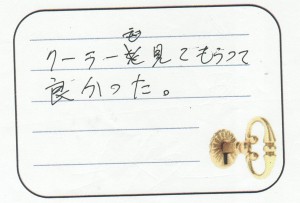 クーラーも見てもらって
良かった。